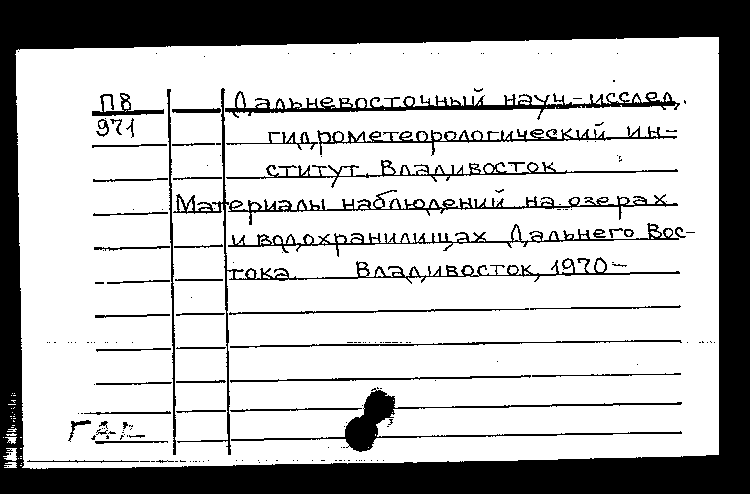 П8 Дальневосточный науч.-исслед.
971 гидрометеорологический ин-
ститут. Владивосток
Материалы наблюдений на озерах
и водохранилищах Дальнего Вос-
тока. Владивосток, 1970-